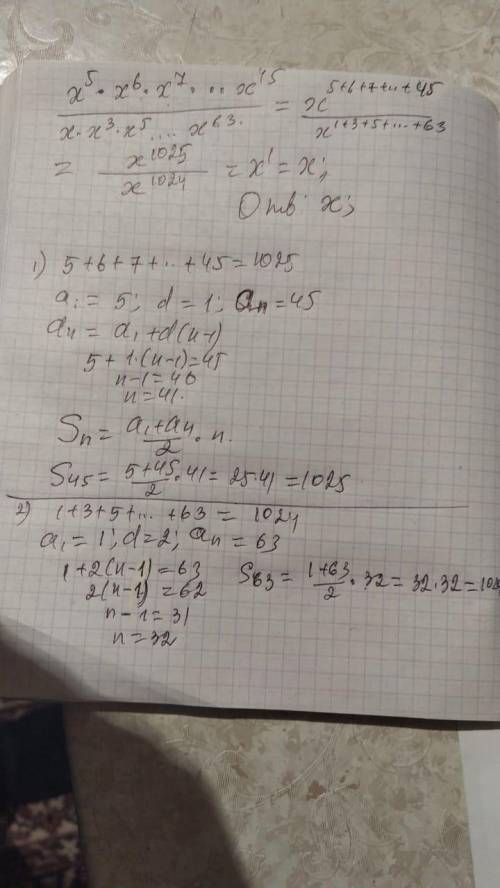 x⁵ · x⁶ · x⁷ · ... x⁴⁵ / x · x³ · x⁵ .... x⁶³ = x⁵⁺⁶⁺⁷⁺...⁺⁴⁵ / x¹⁺³⁺⁵⁺...⁺⁶³
= x¹⁰²⁵ / x¹⁰²⁴ = x¹ = x;
Отв: x;
1) 5+6+7+...+45=1025
a₁ = 5; d = 1; aₙ=45
aₙ = a₁ + d(n-1)
5 + 1·(n-1)=45
n-1=40
n=41.
Sₙ = (a₁+aₙ)/2 · n.
S₄₅ = (5+45)/2 · 41 = 25·41 = 1025
2) 1+3+5+... +63 = 1024
a₁ = 1; d=2; aₙ = 63
1+2(n-1) = 63 S₆₃ = (1+63)/2 · 32 = 32·32 = 1024
2(n-1) = 62
n-1=31
n=32